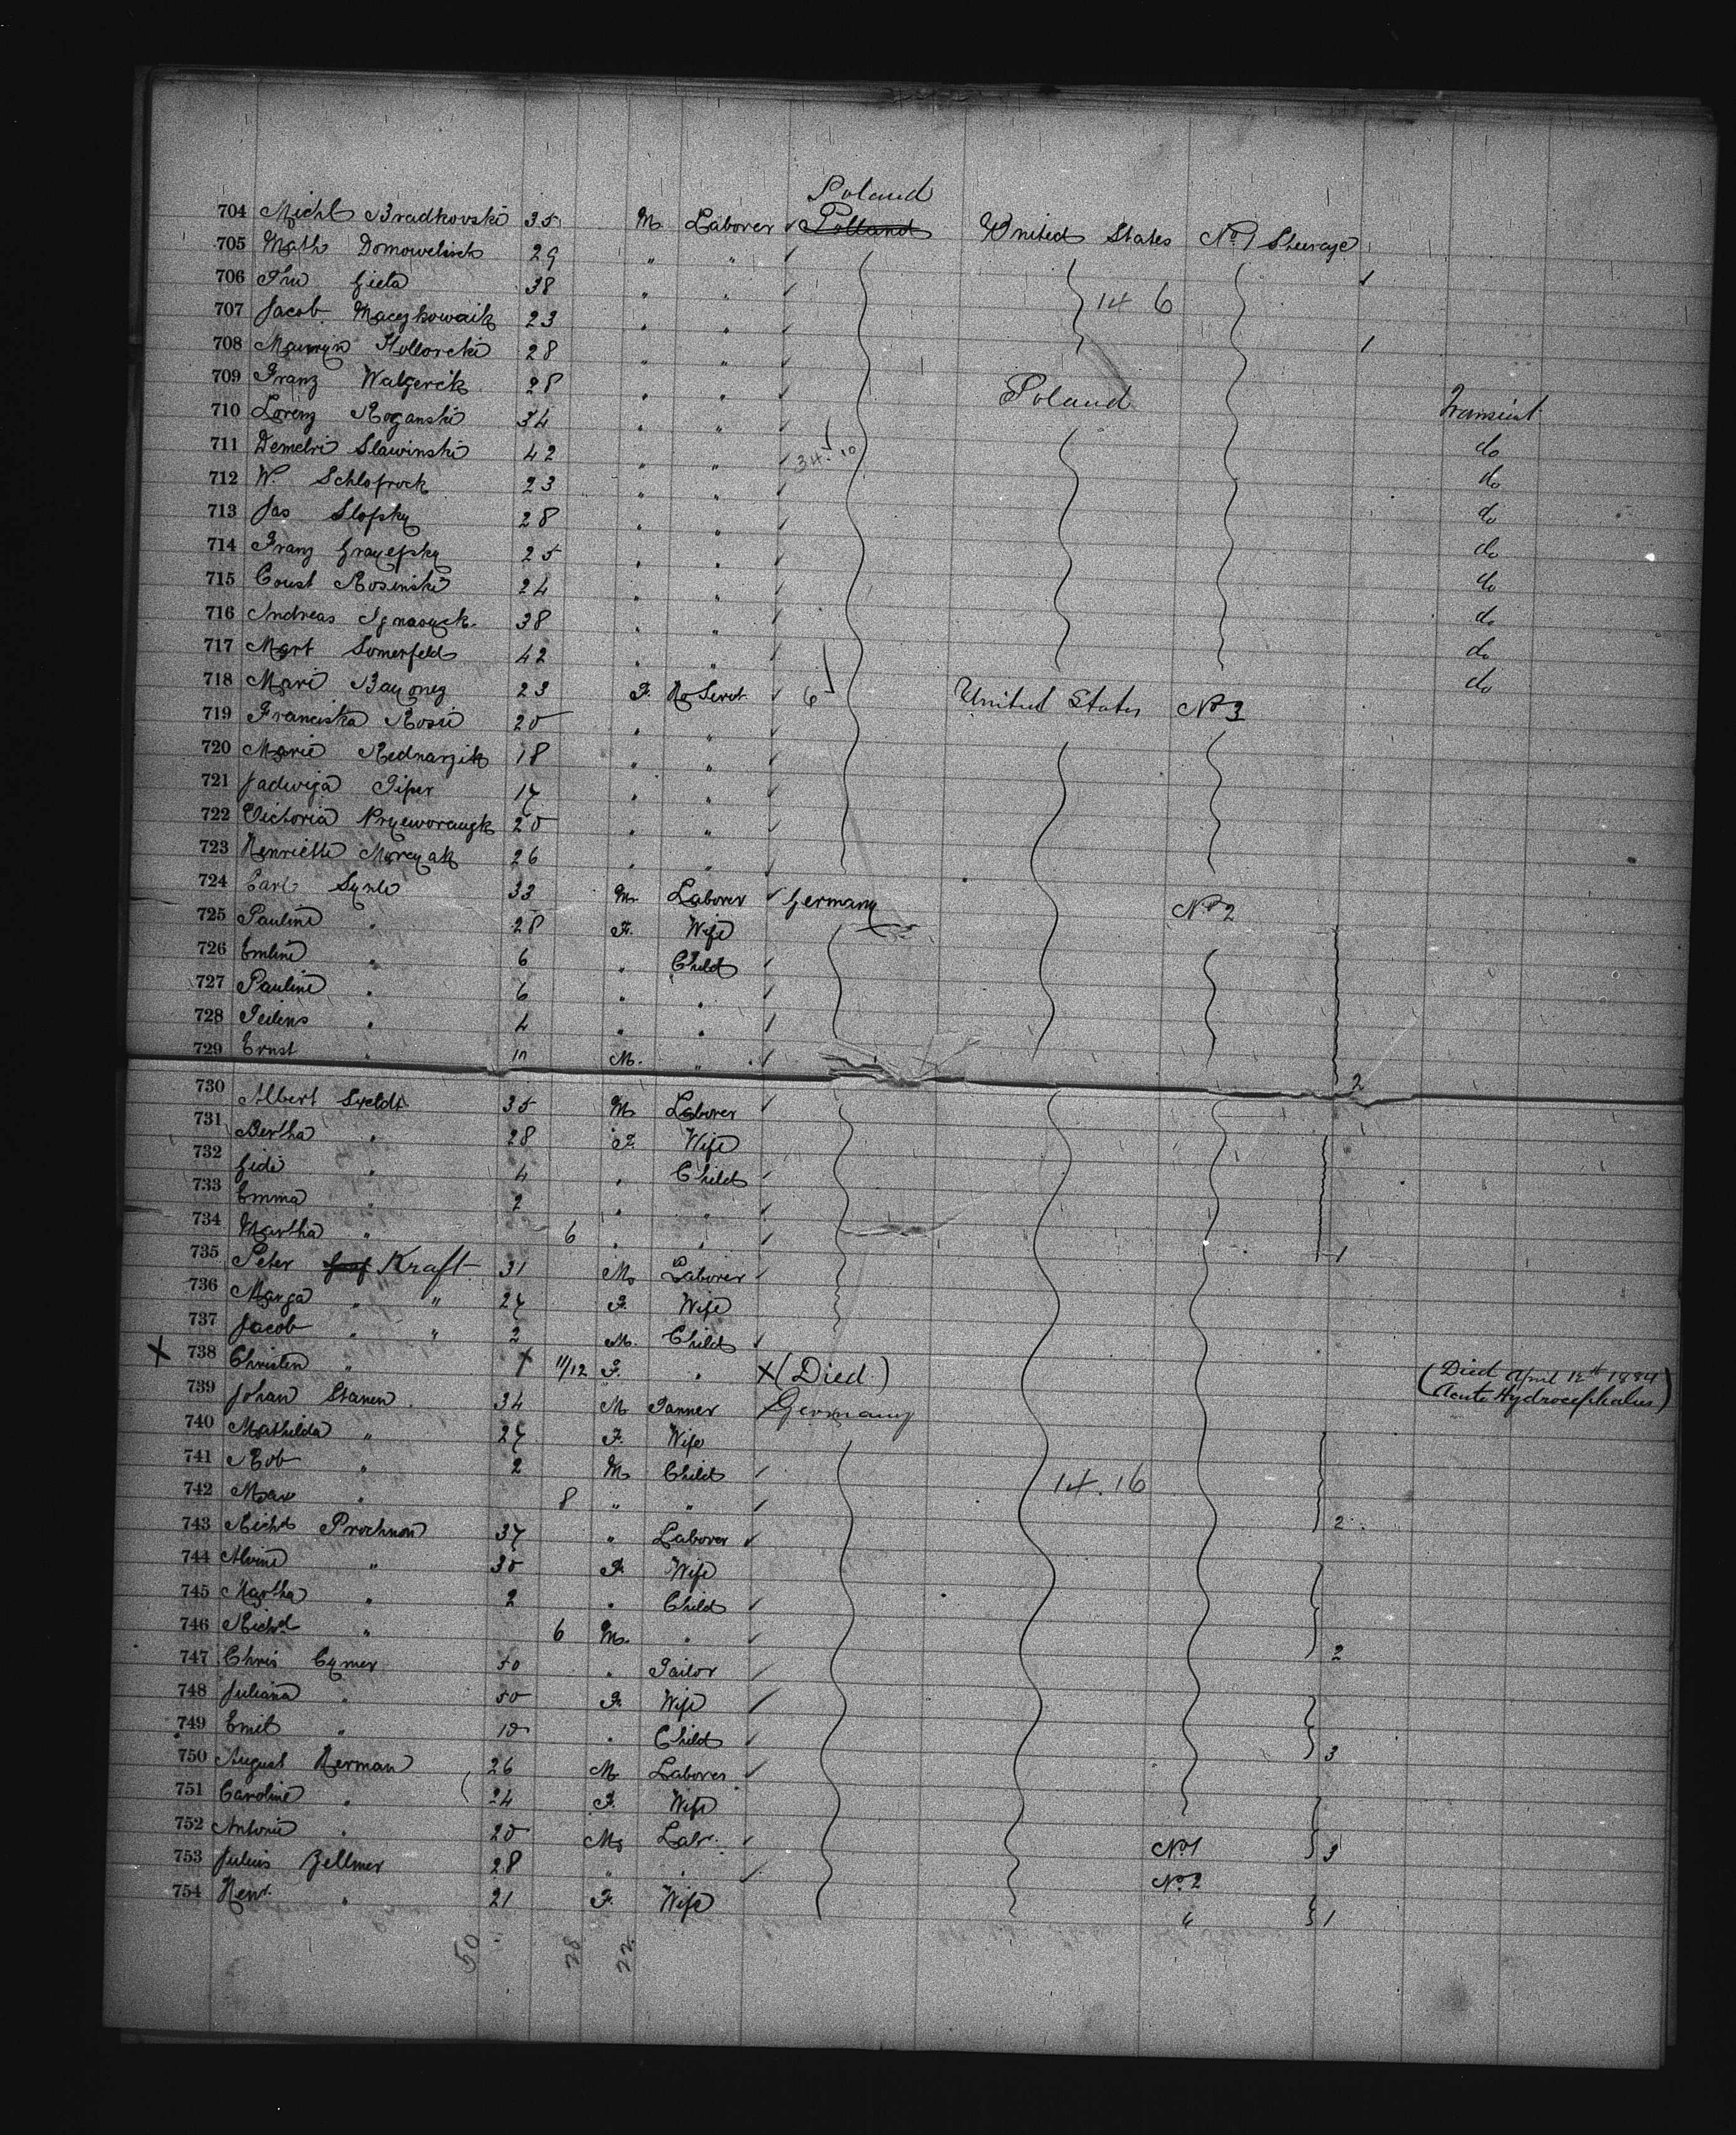 Poland
704 Michl Bradkovski 35 M Laborer ✓ Polland United States No 1 Steerage
705 Math Domowelisch 29 " " ✓
706 38 " " ✓ 14 6
707 Jacob 23 " " ✓
708 28 " " ✓
709 Franz Walgercik 28 " " ✓ Poland Transient
710 Lorenz Roganski 34 " " ✓ do
711 Demetri Slawinski 42 " " ✓ 34. 10 do
712 W. Schlofrock 23 " " ✓ do
713 Jas Slofsky 28 " " ✓ do
714 Franz 25 " " ✓ do
715 Const Rosinski 24 " " ✓ do
716 Andreas 38 " " ✓ do
717 Mart Somerfeld 42 " " ✓ do
718 Mari 23 F. ✓ 6 United States No 3
719 Franciska Rosii 20 " " ✓
720 Marie Rednarzik 18 " " ✓
721 Jadwiga Piper 17 " " ✓
722 Victoria 20 " " ✓
723 Henriette 26 " " ✓
724 Carl 33 M. Laborer ✓ Germany No 2
725 Pauline " 28 F. Wife
726 Emline " 6 " Child ✓
727 Pauline " 6 " " ✓
728 " 4 " " ✓
729 Ernst " M. " ✓ 2
730 Albert 35 M Laborer ✓
731 Bertha " 28 F Wife
732 " 4 " Child ✓
733 Emma " 2 " " ✓
734 Martha " 6 " " ✓ 1
735 Peter Kraft 31 M Laborer ✓
736 Marga " " 27 F. Wife
737 Jacob " " 2 M. Child ✓
X 738 Christen " 11/12 F. " X (Died) (Died April 12th 1884
Acute Hydrocephalus)
739 Johan Stamen 34 M Tanner Germany
740 Mathilda " 27 F. Wife
741 Rob " 2 M Child ✓ 14. 16
742 Max " 8 " " ✓ 2
743 Richd Prochnon 37 " Laborer ✓
744 Alvine " 30 F. Wife
745 Martha " 2 " Child ✓
746 Richd " 6 M. " ✓ 2
747 Chris Cymer 50 " Tailor ✓
748 Juliana " 50 F. Wife ✓
749 Emil " 10 " Child ✓ 3
750 August Herman 26 M Laborer ✓
751 Caroline " 24 F. Wife
752 Antonie " 20 M Labr. ✓ No 1 3
753 Julius Zellmer 28 " " ✓ No 2
754 Henr. " 21 F. Wife " 1
50 28 22